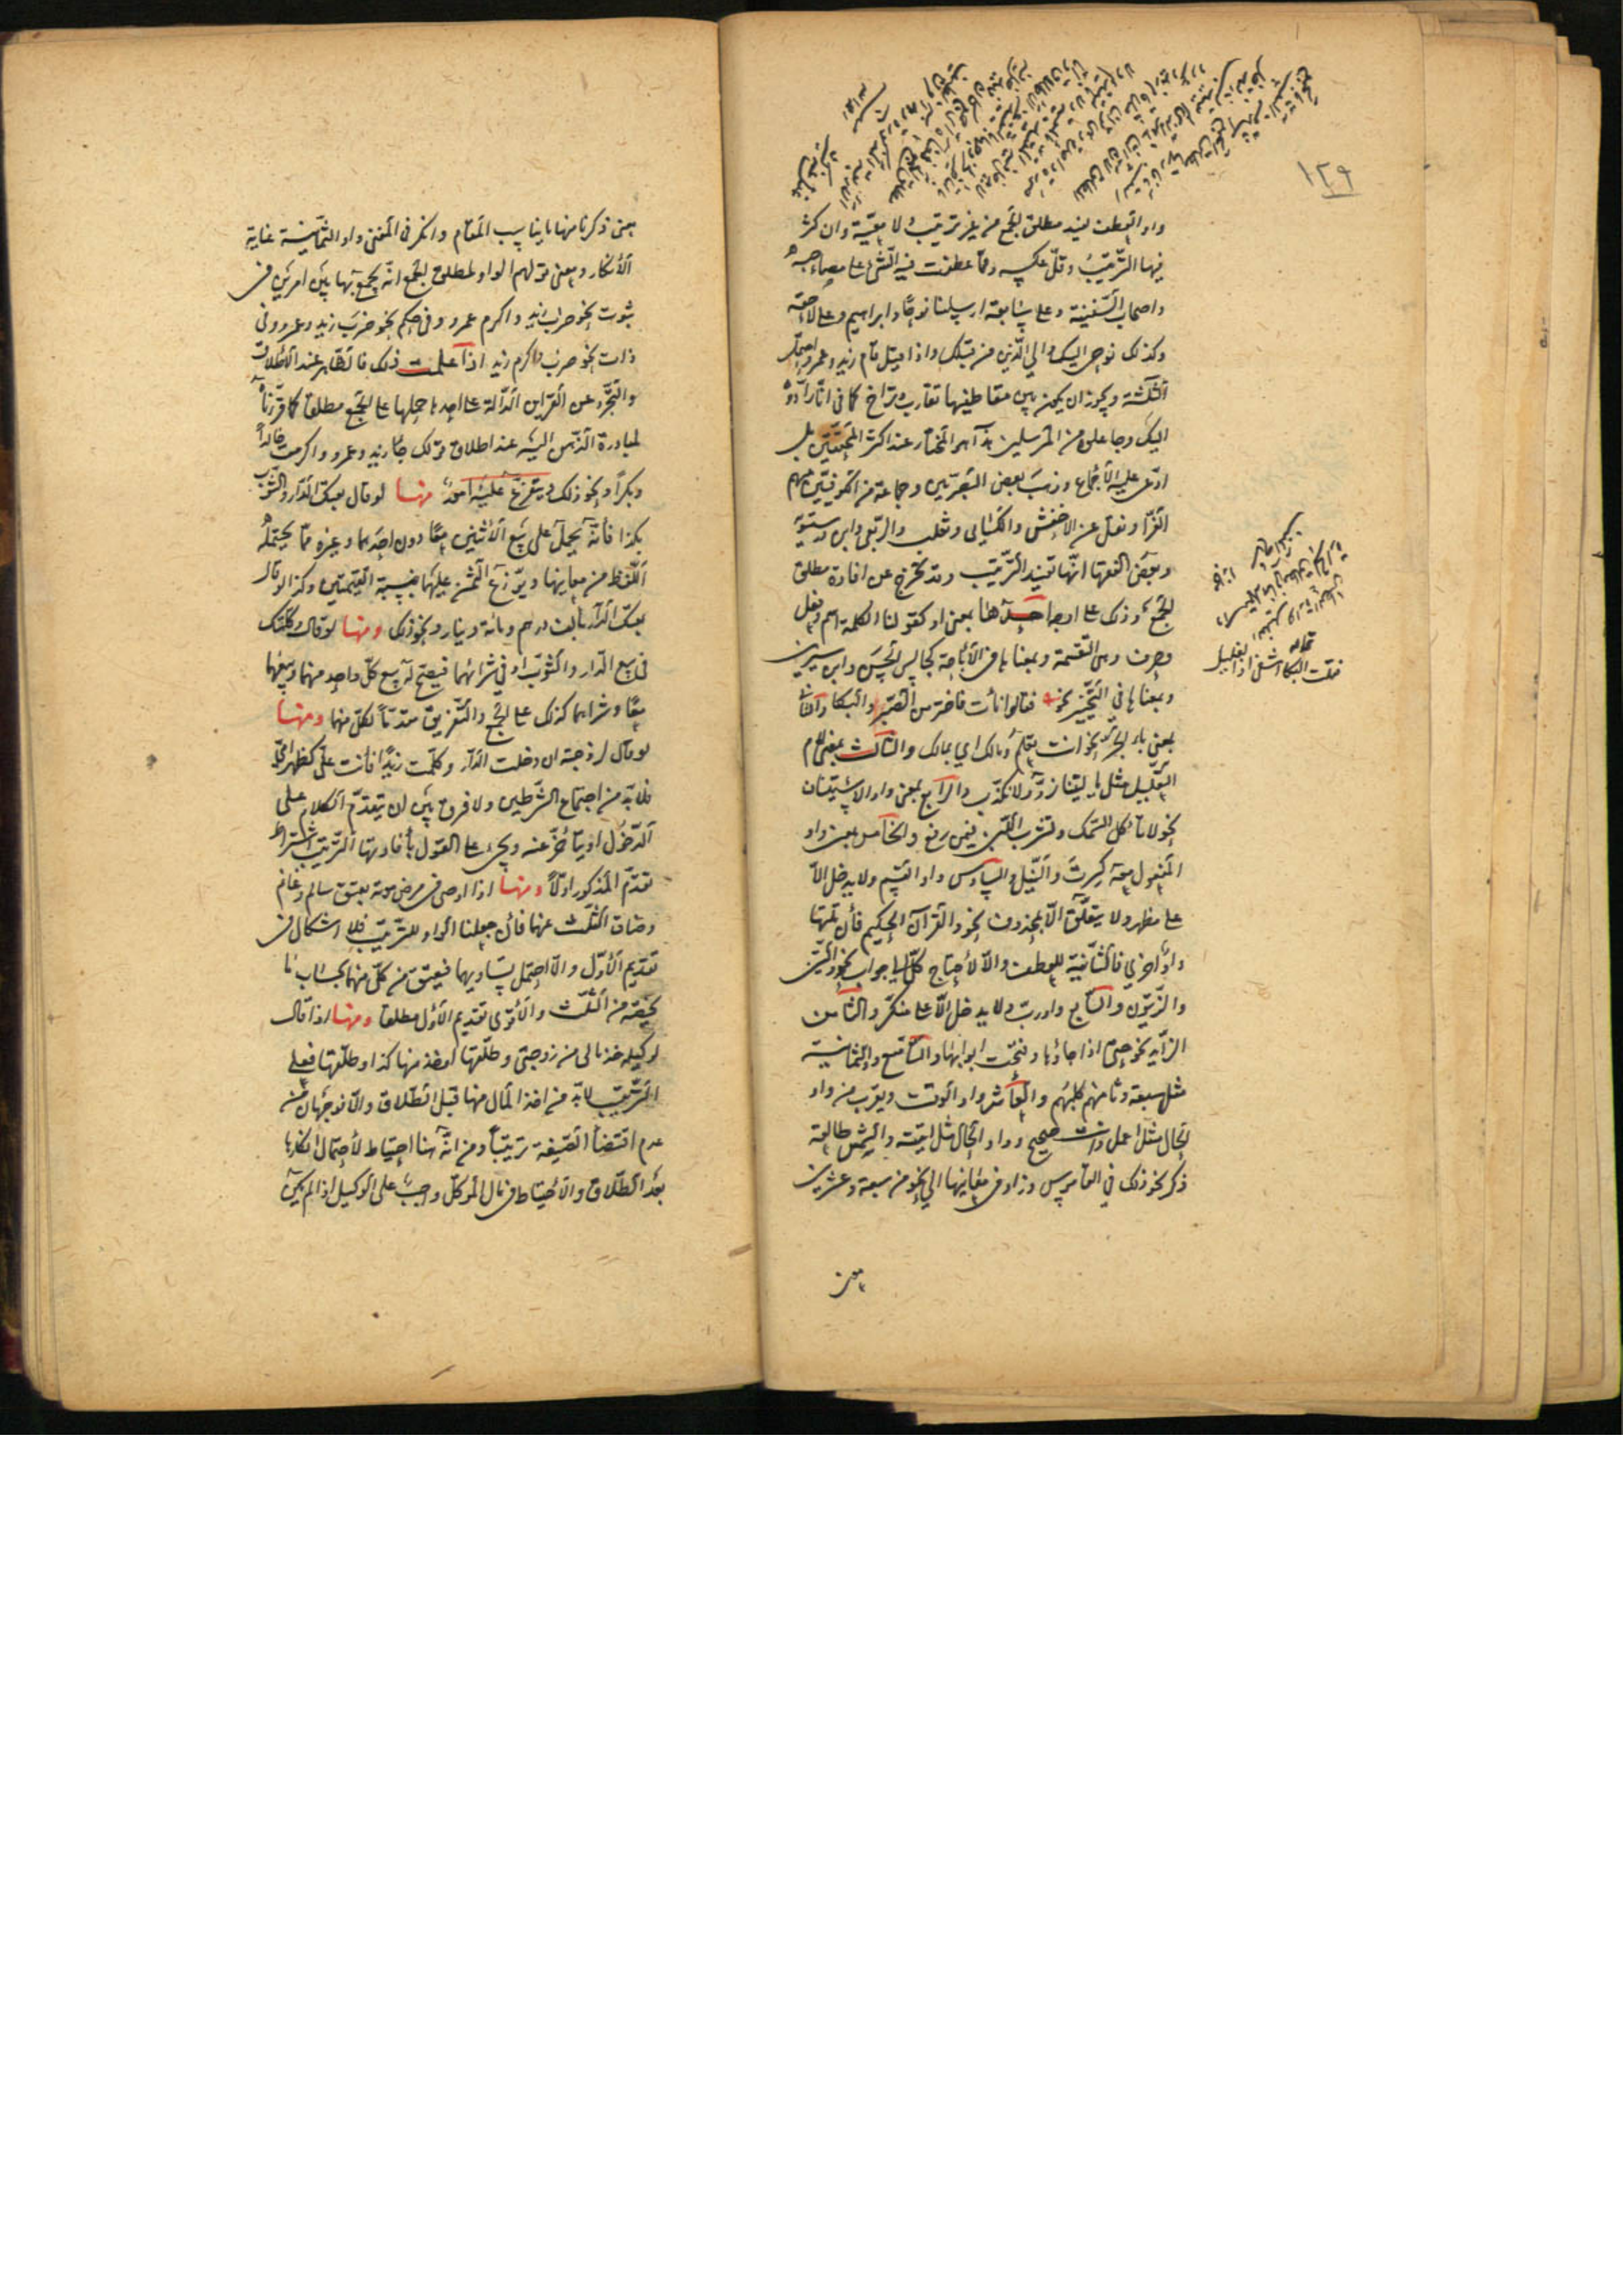 ١٢٩
واو العطف يفيد مطلق الجمع من غير ترتيب ولا معيّة وان كثر
فيها الترتيب وقلّ عكسه وممّا عطفت فيه الشئ على مصاحبه
واصحاب السّفينة وعلى سابقه ارسلنا نوحًا وابراهيم وعلى لاحقه
وكذلك نوحى اليك والى الّذين من قبلك واذا قيل قام زيد وعمرو احتمل
الثلثة ويجوز ان يكون بين متعاطفيها تقارب او تراخ كما فى انّا رادّوه
اليك وجاعلوه من المرسلين هذا هو المختار عند اكثر المحققين بل
ادّعى عليه الأجماع وذهب بعض البصريين وجماعة من الكوفيّين منهم
الفرّا ونقل عن الاخفش والكسائى وثعلب والربعى وابن درستويه
وبعض الفقها انّها تفيد الترتيب وقد تخرج عن افادة مطلق
الجمع وذلك على اوجه احدها بمعنى او كقولنا الكلمة اسم وفعل
وحرف وهى التقسيمة وبمعناها فى الأباحة كجالس الحسن وابن سيرين
وبمعناها فى التخيير نحو فقالوا نأت فاختر من الصّبر والبكا والثانى
بمعنى باء الجرّ نحو انت اعلم ومالك اى بمالك والثالث بمعنى لام
التّعليل مثل يا ليتنا نردّ ولا نكذّب والرابع بمعنى واو الاستيناف
نحو لا تأكل السّمك وتشرب اللّبن فيمن رفع والخامس بمعنى واو
المفعول معه كسرت والنيل والسادس واو القسم ولا يدخل الاّ
على مظهر ولا يتعلّق الاّ بمحذوف نحو والقرآن الحكيم فأن تلتها
واو اخرى فالثّانية للعطف والاّ لاحتاج كلّ الى جواب نحو والتين
والزّيتون والسّابع واو ربّ ولا يدخل الاّ على منكّر والثامن
الزّايد نحو حتّى اذا جاؤها وفتحت ابوابها والتّاسع واو الثمانية
مثل سبعة وثامنهم كلبهم والعاشر واو الوقت ويقرب من واو
الحال مثل اعمل وانت صحيح وواو الحال مثل اتيته والشمس طالعة
ذكر نحو ذلك فى القاموس وزاد فى معانيها الى نحو من سبعة وعشرين
معنى
قاله
فقلت البكا اشفى اذا لغليل
معنى ذكرنا منها ما يناسب المقام وانكر فى المغنى واو الثمانية غاية
الأنكار ومعنى قولهم الواو لمطلق الجمع انّه يجمع بها بين امرين فى
ثبوت نحو ضرب زيد واكرم عمرو وفى حكم نحو ضرب زيد وعمرو وفى
ذات نحو ضرب واكرم زيد اذا علمت ذلك فالظاهر عند الاطلاق
والتّجرّد عن القراين الدّالة على احدها حملها على الجمع مطلقا كما قرّرناه
لمبادرة الذّهن اليه عند اطلاق قولك جاء زيد وعمرو واكرمت خالدًا
وبكرًا ونحو ذلك ويتفرّع عليه امور منها لو قال بعتك الدّار والثّوب
بكذا فأنّه يحمل على بيع الأثنين معًا دون احدهما وغيره ممّا يحتمله
اللّفظ من معاينها ويوزّع الثّمن عليهما بنسبة القيمتين وكذا لو قال
بعتك الدّار بألف درهم ومائة دينار ونحو ذلك ومنها لو قال وكّلتك
فى بيع الدّار والثّوب او فى شرائهما فيصحّ له بيع كلّ واحد منهما وبيعهما
معًا وشراهما كذلك على الجمع والتّفريق متعدّيًا لكلّ منهما ومنها
لو قال لزوجته ان دخلت الدّار وكلّمت زيدًا فانت علىّ كظهر امّى
فلا بدّ من اجتماع الشّرطين ولا فرق بين ان يتقدّم الكلام على
الدّخول او يتأخّر عنه ويجئ على القول بأفادتها الترتيب اشتراط
تقدّم المذكور اوّلاً ومنها اذا اوصى فى مرض موته بعتق سالم وغانم
وضاق الثّلث عنهما فأن جعلنا الواو للترتيب فلا اشكال فى
تقديم الأوّل والاّ احتمل تساويهما فيعتق من كلّ منهما بحساب ما
يخصّه من الثّلث والأقوى تقديم الأوّل مطلقا ومنها اذا قال
لوكيله خذ مالى من زوجتى وطلّقها او خذ منها كذا وطلّقها فعلى
الترتيب لا بدّ من اخذ المال منها قبل الطّلاق والاّ فوجهان من
عدم اقتضا الصّيغة ترتيبًا ومن انّه هنا احتياط لأحتمال انكارها
بعد الطّلاق والأحتياط فى مال الموكّل واجب على الوكيل اذا لم يكن